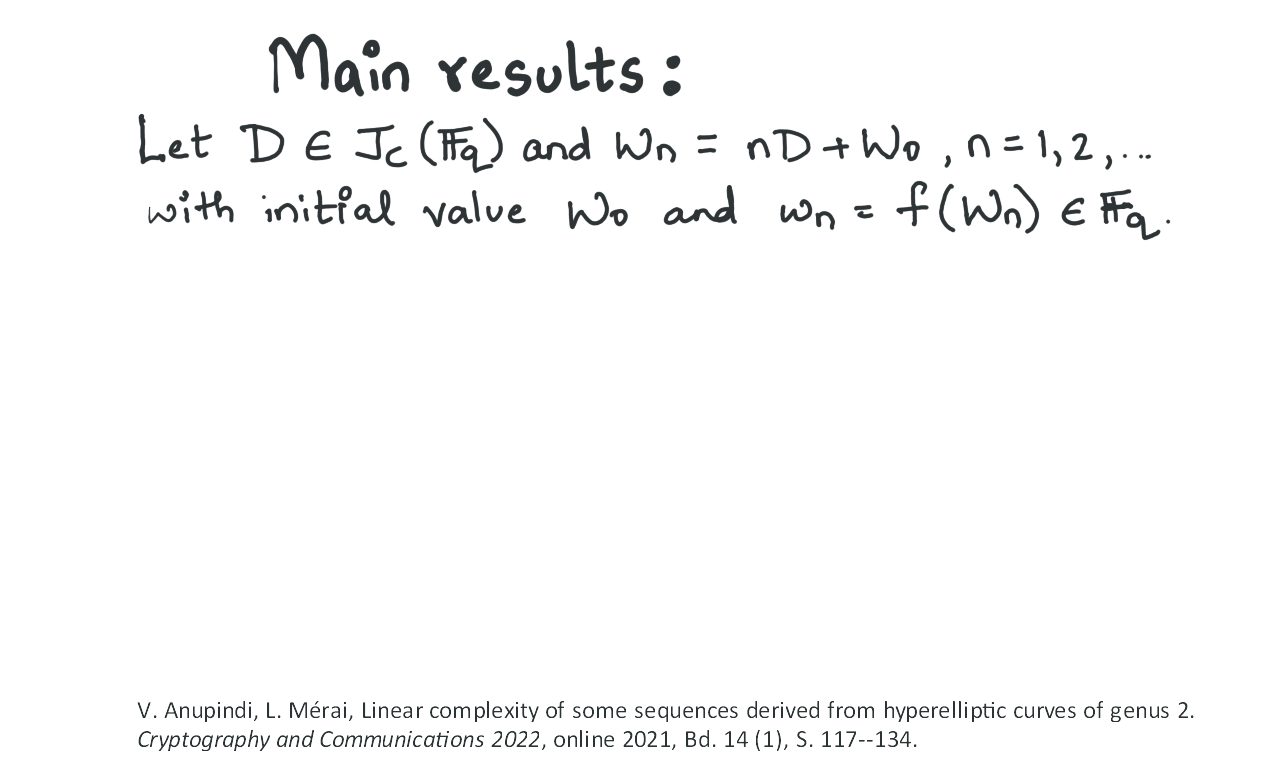 Main results:
Let D ∈ J_C(𝔽_q) and W_n = nD + W_0, n = 1, 2, ...
with initial value W_0 and w_n = f(W_n) ∈ 𝔽_q.
V. Anupindi, L. Mérai, Linear complexity of some sequences derived from hyperelliptic curves of genus 2.
Cryptography and Communications 2022, online 2021, Bd. 14 (1), S. 117--134.